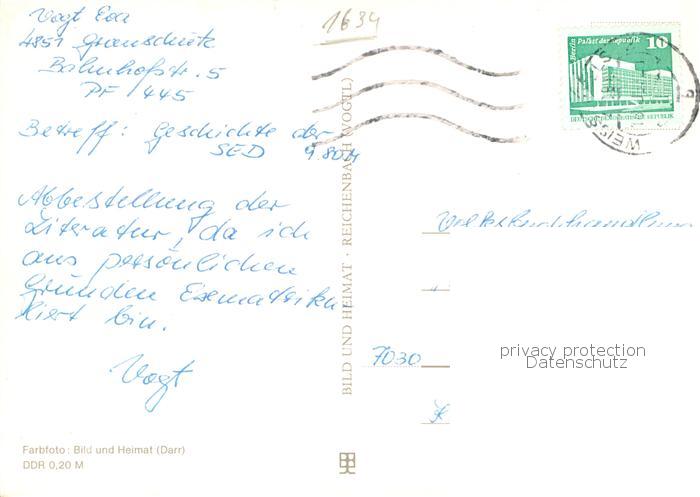 Vogt Eva
4851 Granschütz
Bahnhofstr. 5
PF 445
Betreff: Geschichte der
SED 9.80 M
Abbestellung der
Literatur, da ich
aus persönlichen
Gründen Exmatriku
liert bin.
Vogt
Farbfoto: Bild und Heimat (Darr)
DDR 0,20 M
1634
BILD UND HEIMAT · REICHENBACH (VOGTL)
Berlin Palast der Republik
10
DEUTSCHE DEMOKRATISCHE REPUBLIK
WEISS
Volksbuchhandlung
7030
privacy protection
Datenschutz